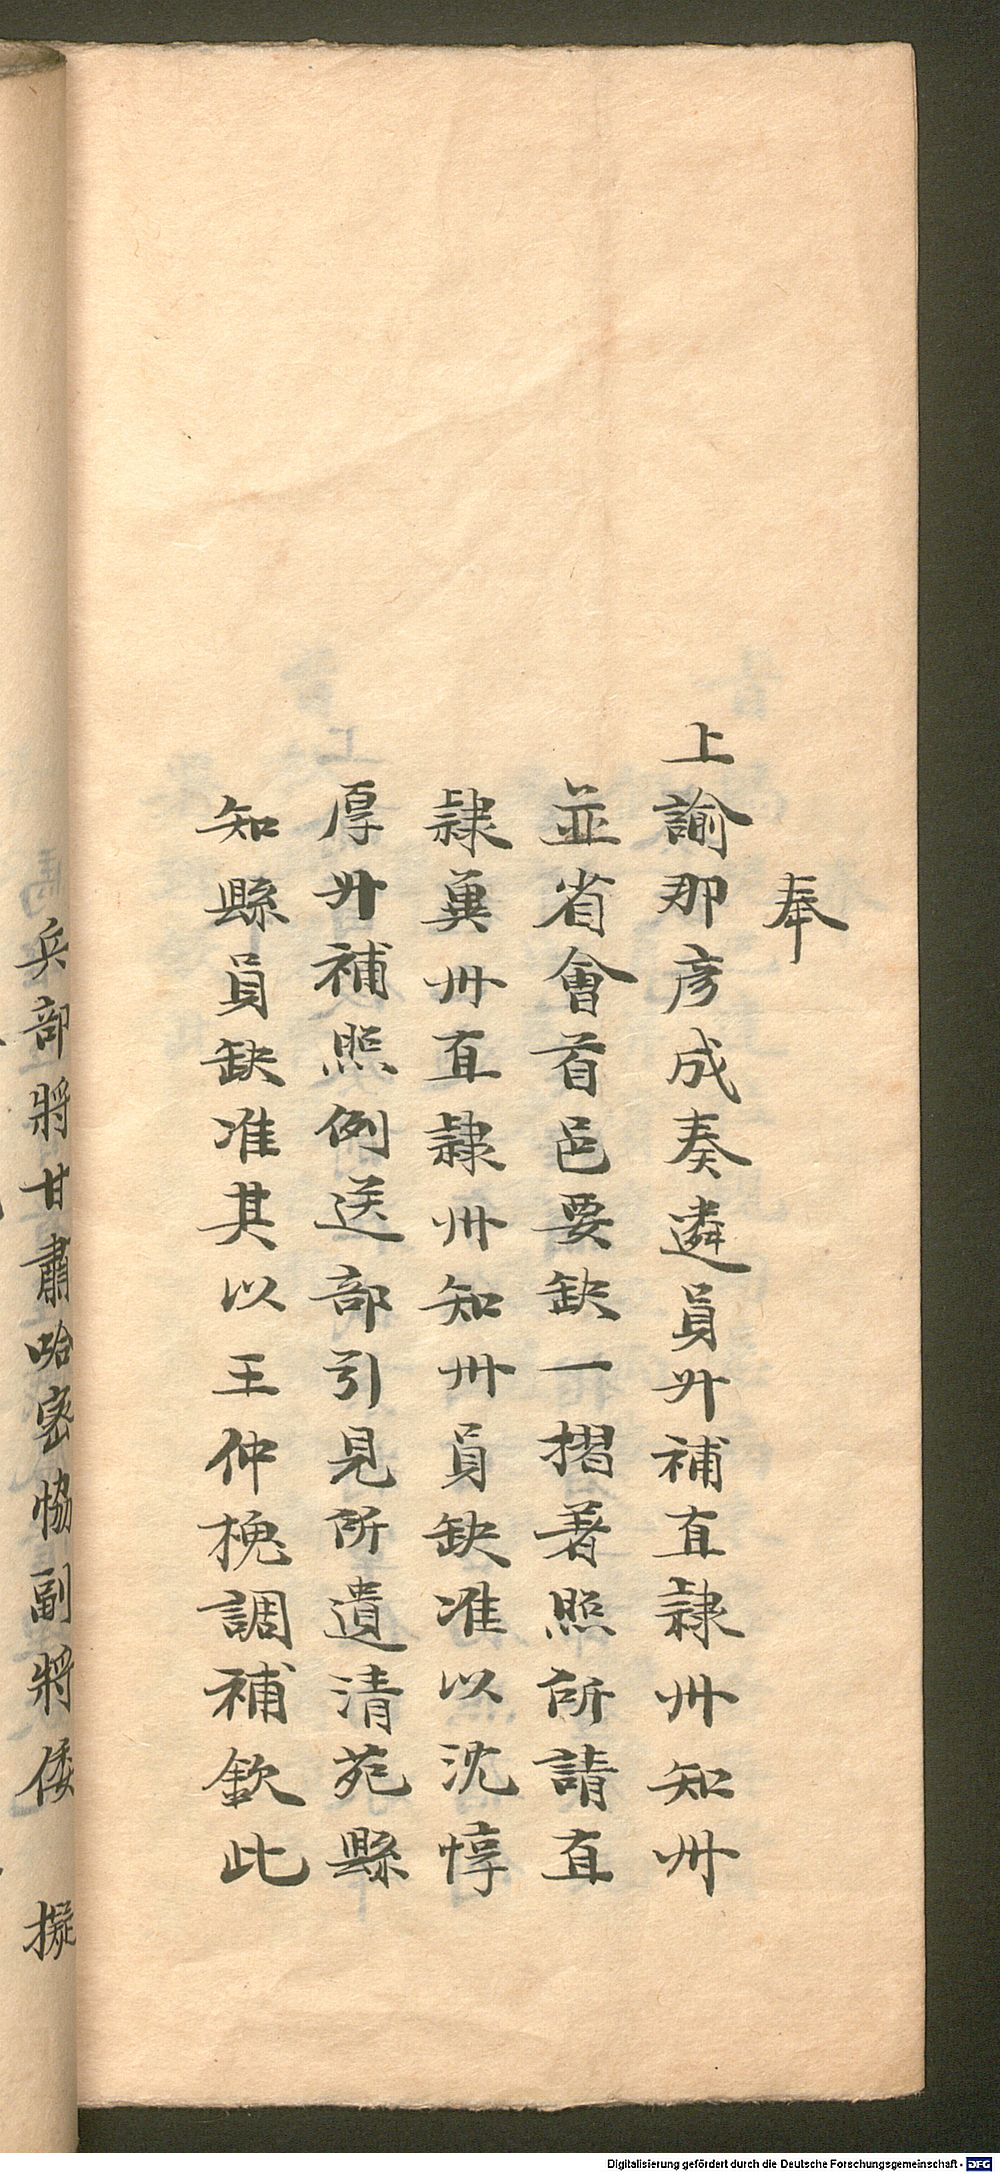 奉
上諭那彦成奏遴員升補直隷州知州
並省會首邑要缺一摺著照所請直
隷冀州直隷州知州員缺准以沈惇
厚升補照例送部引見所遺清苑縣
知縣員缺准其以王仲槐調補欽此
兵部將甘肅哈密協副將倭 擬
Digitalisierung gefördert durch die Deutsche Forschungsgemeinschaft - DFG